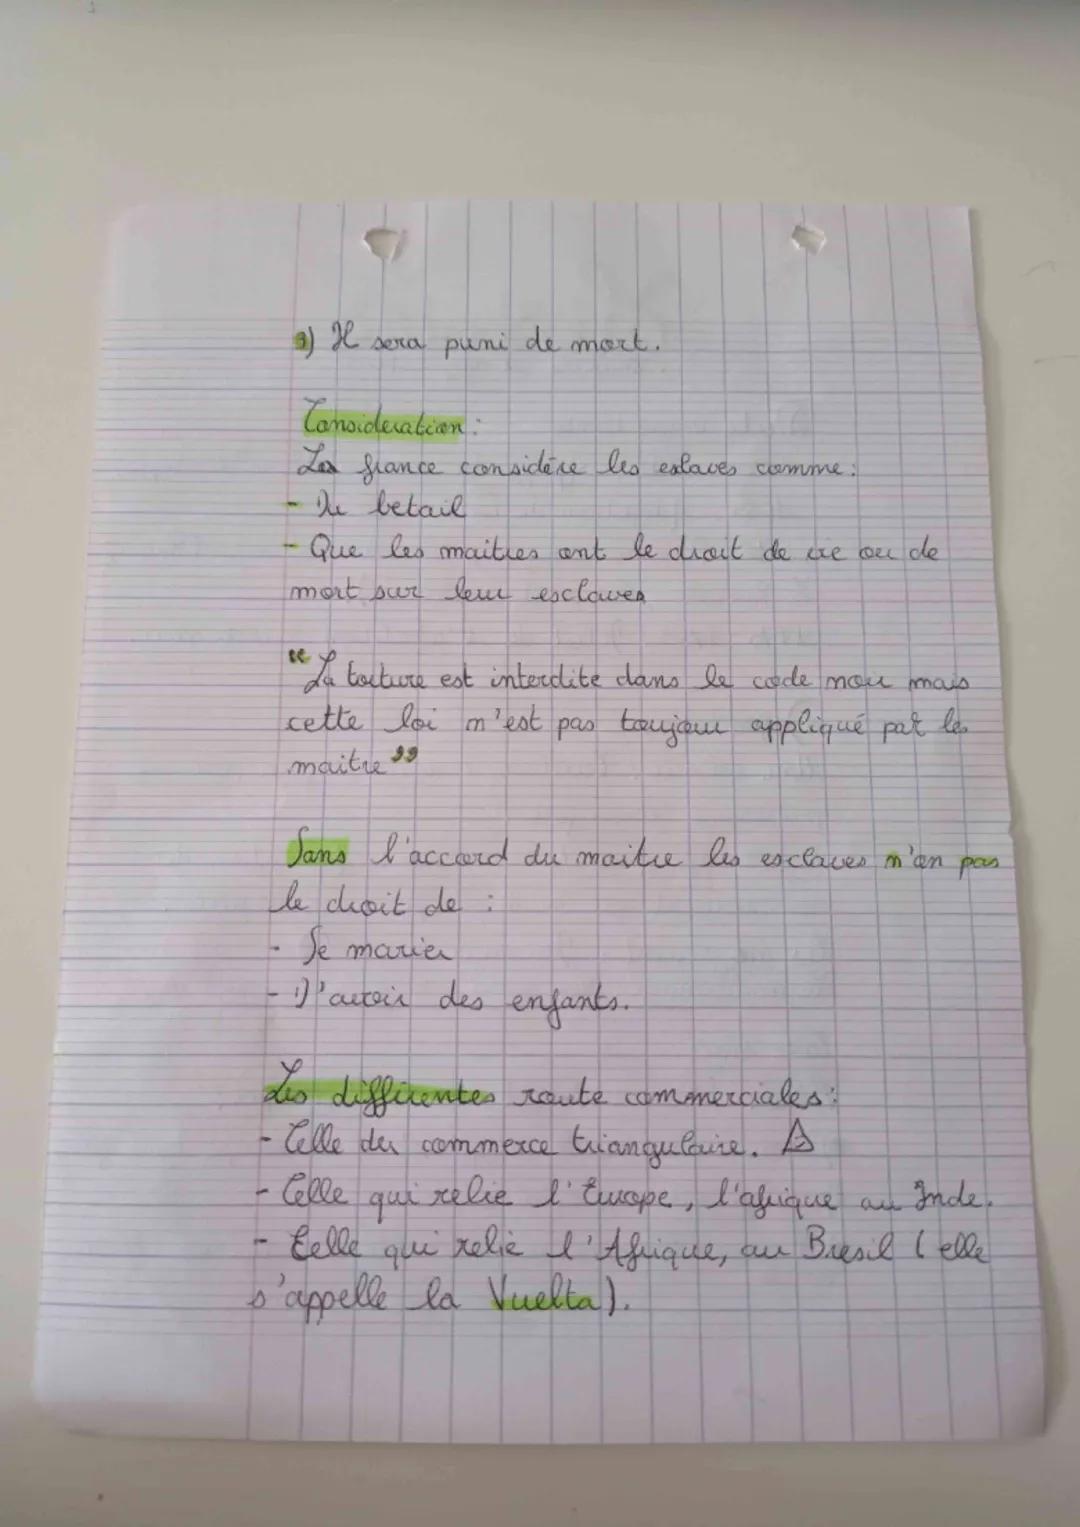 3) Il sera puni de mort.
Consideration :
La france considère les eslaves comme :
- Du betail
- Que les maitres ont le droit de vie ou de
mort sur leur esclaves
" La torture est interdite dans le code noir mais
cette loi n'est pas toujour appliqué par les
maitre "
Sans l'accord du maitre les esclaves n'on pas
le droit de :
- Se marier
- D'avoir des enfants.
Les différentes route commerciales :
- Celle du commerce triangulaire.
- Celle qui relie l'Europe, l'afrique au Inde.
- Celle qui relie l'Afrique, au Bresil ( elle
s'appelle la Vuelta ).